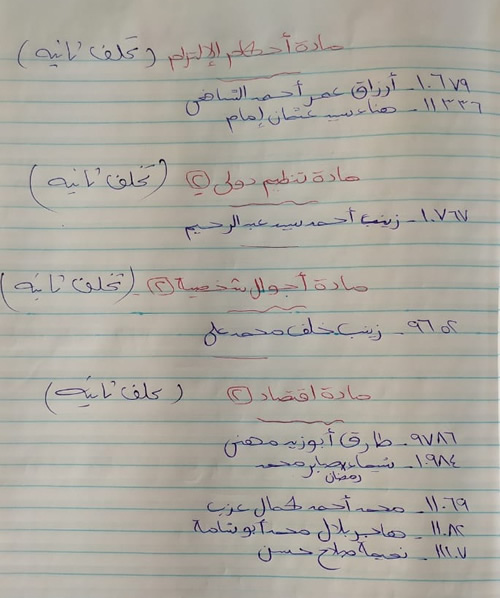 مادة أحكام الإلتزام (تخلف ثانيه)
١٠٦٧٩- أرزاق عمر أحمد الشافعي
١١٣٣٦- هناء سيد عثمان إمام
مادة تنظيم دولي (٢) (تخلف ثانيه)
١٠٧٦٧- زينب أحمد سيد عبد الرحيم
مادة أحوال شخصية (٢) (تخلف ثانيه)
٩٦٥٢- زينب خلف محمد علي
مادة اقتصاد (٢) (تخلف ثانيه)
٩٧٨٦- طارق أبوزيد مهني
١٠٩٨٤- شيماء صابر محمد
رمضان
١١٠٦٩- محمد أحمد كمال عزب
١١٠٨٢- هاجر بلال محمد أبو شامة
١١٢٠٧- نعيمة صلاح حسن